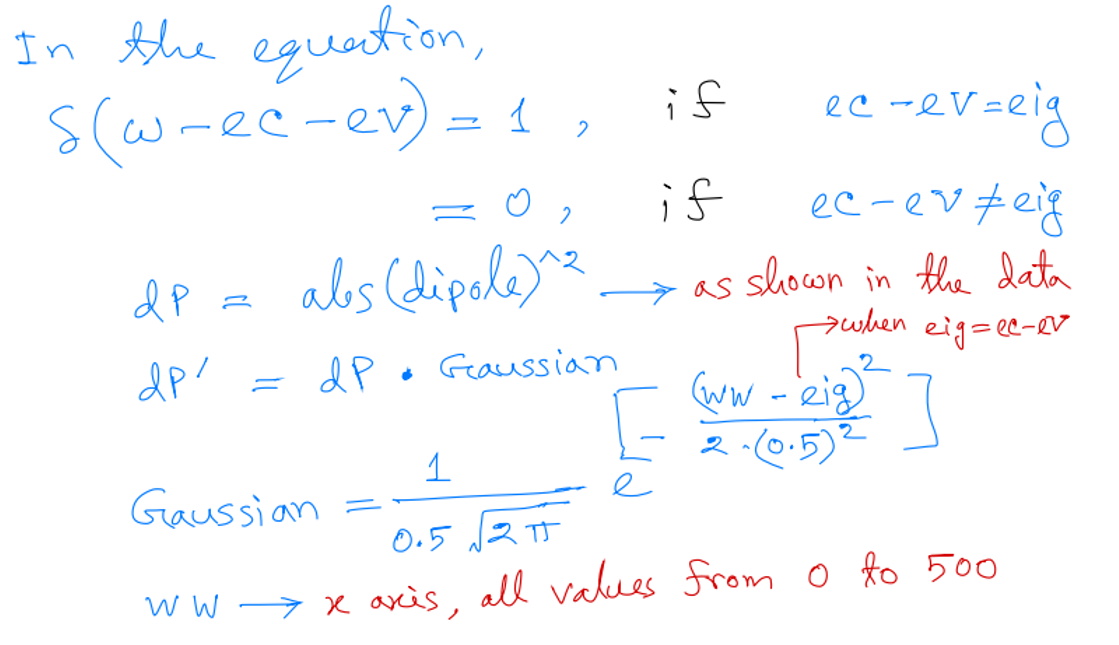 In the equation,
δ(ω-ec-ev) = 1, if ec-ev=eig
= 0, if ec-ev≠eig
dP = abs(dipole)^2 → as shown in the data
→when eig=ec-ev
dP' = dP • Gaussian
Gaussian = 1/(0.5 √2π) e^[-(ww-eig)²/(2·(0.5)²)]
ww → x axis, all values from 0 to 500